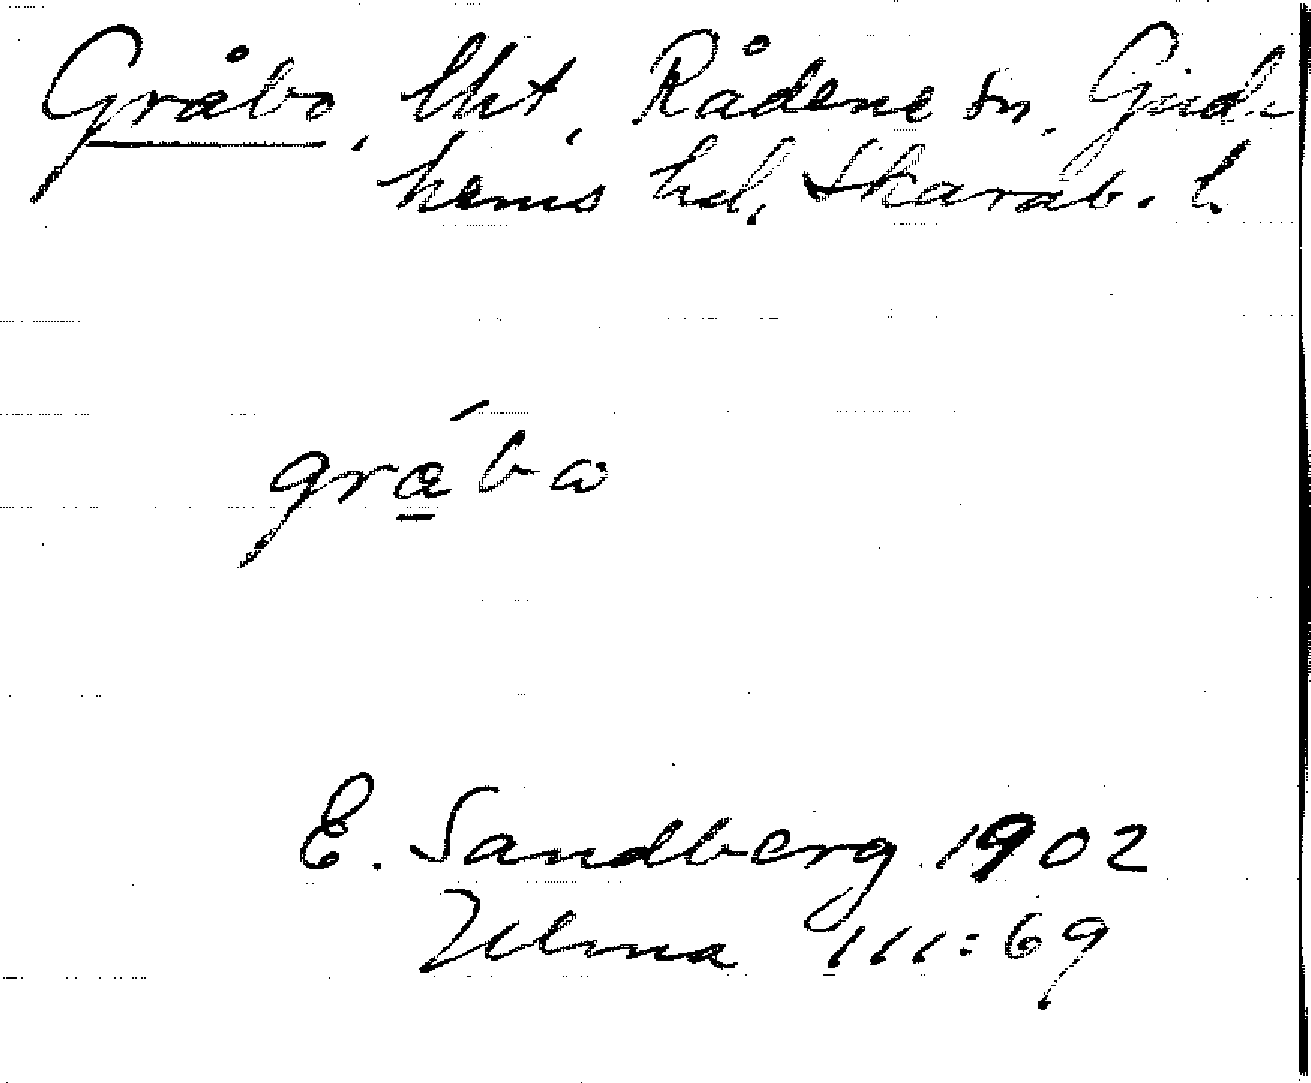 Gråbo, lht, Rådene sn, Gud-
hems hd, Skarab. l.
gråbω
E. Sandberg 1902
Ulma 111:69